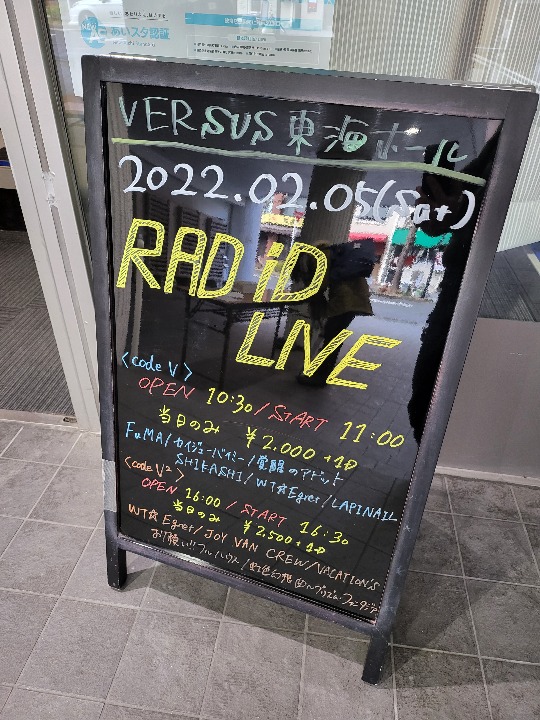 あいスタ認証
VERSUS 東海ホール
2022.02.05(Sat)
RAD iD
LIVE
<code V>
OPEN 10:30 / START 11:00
当日のみ ¥2,000 +1D
FuMA/カイジューバイミー/覚醒のアドット
SHIKASHI/WT☆Egret/LAPINAIL
<code V²>
OPEN 16:00 / START 16:30
当日のみ ¥2,500+1D
WT☆Egret/JOY VAN CREW/VACATION's
お願い!!フルハウス/虹色幻想曲〜プリズム・ファンタジア